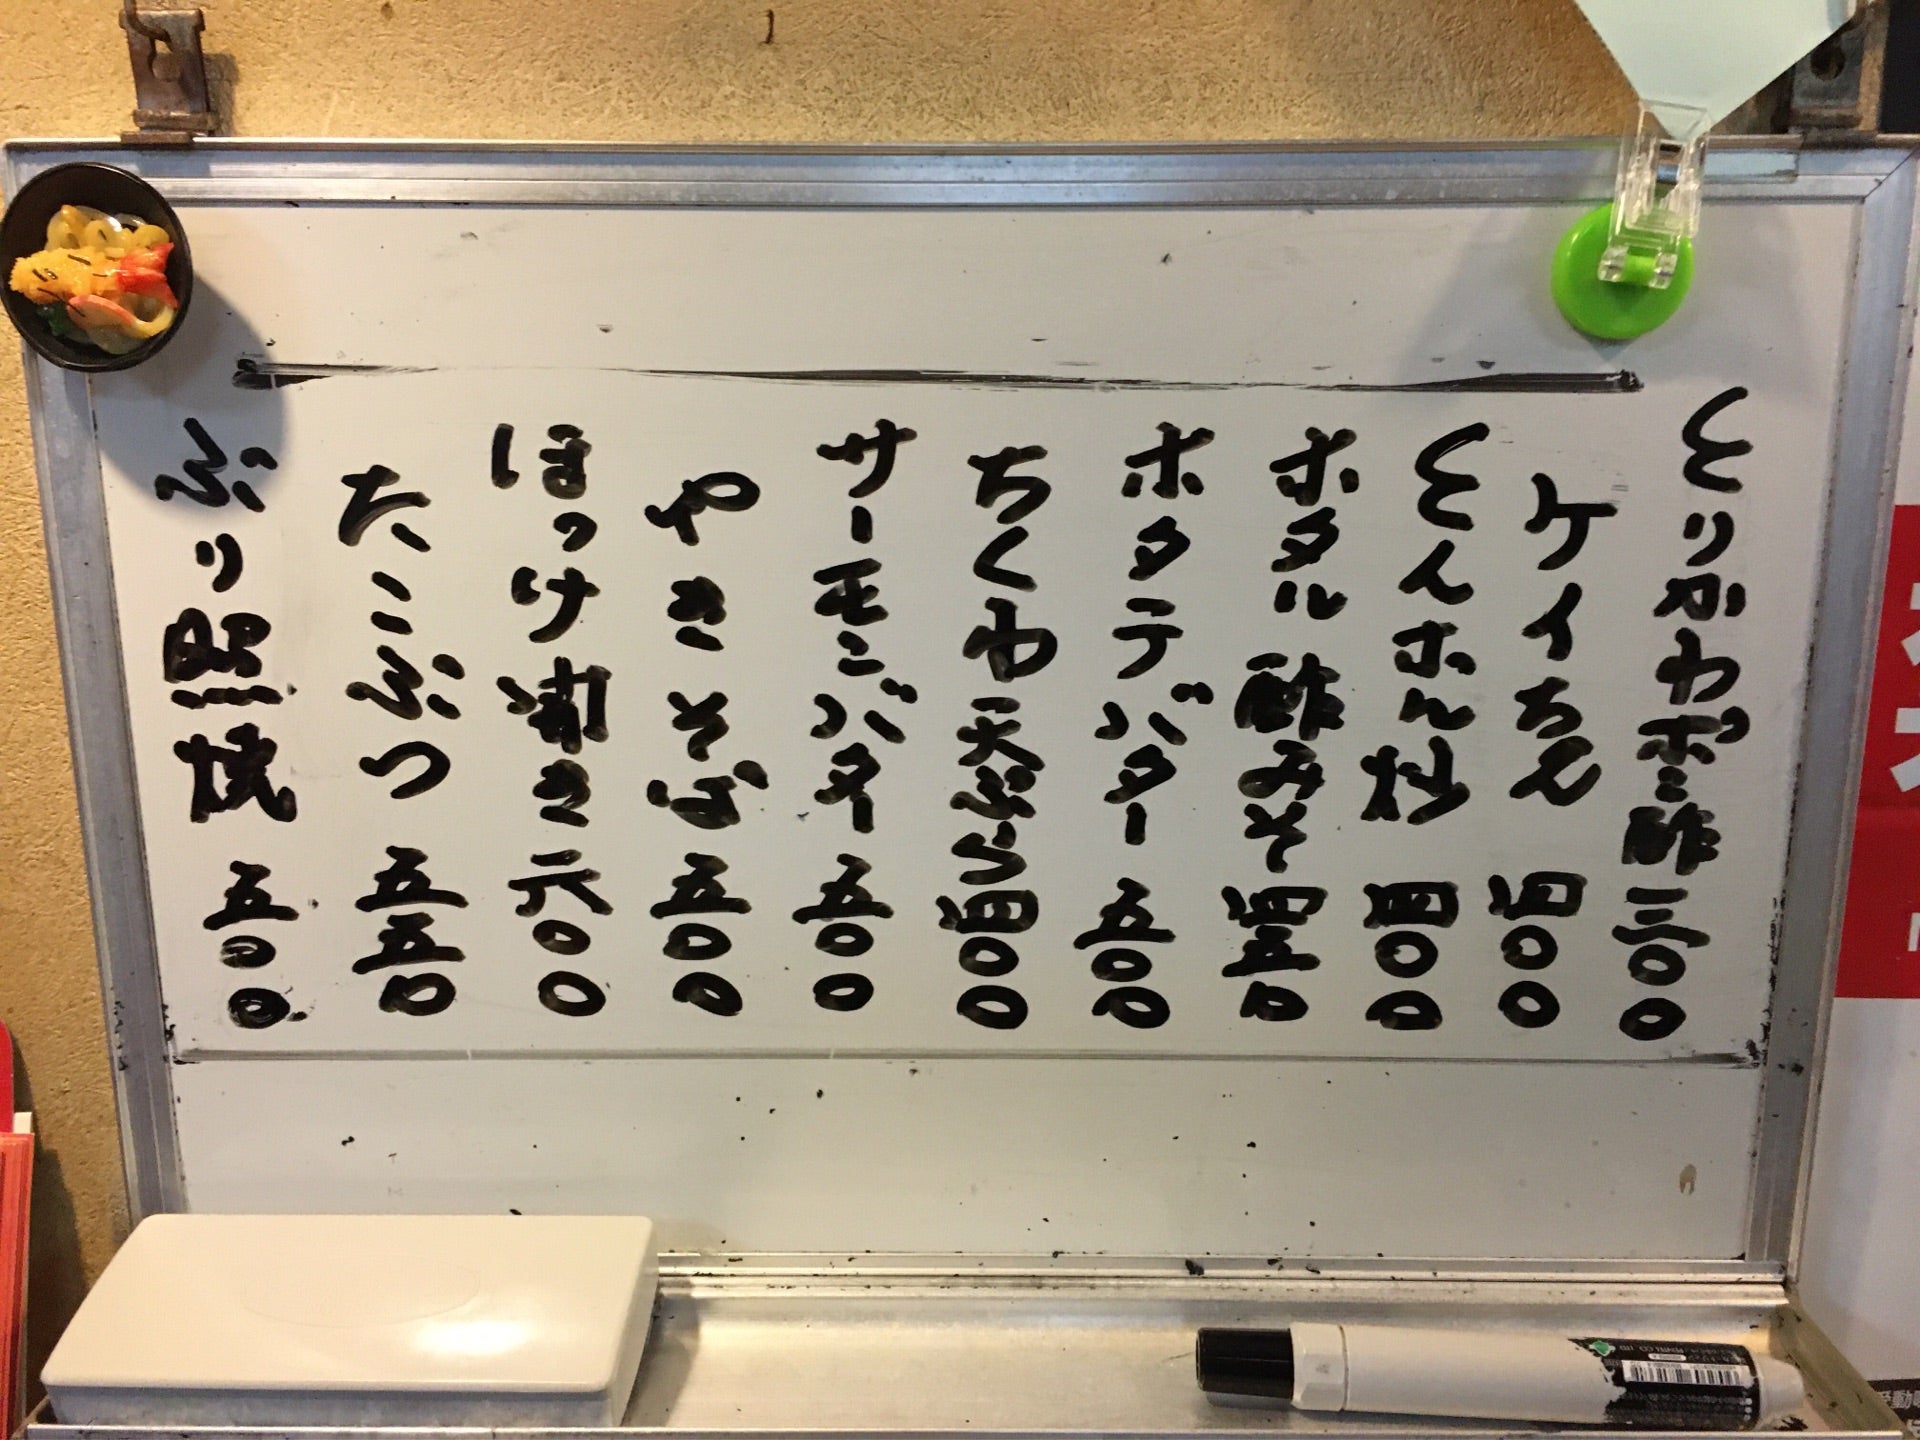 とりかわポン酢 三〇〇
ケイちゃん 四〇〇
とんホル炒 四〇〇
ホタル酢みそ 四五〇
ホタテバター 五〇〇
ちくわ天ぷら 四〇〇
サーモンバター 五〇〇
やきそば 五〇〇
ほっけ開き 六〇〇
たこぶつ 五五〇
ぶり照焼 五〇〇